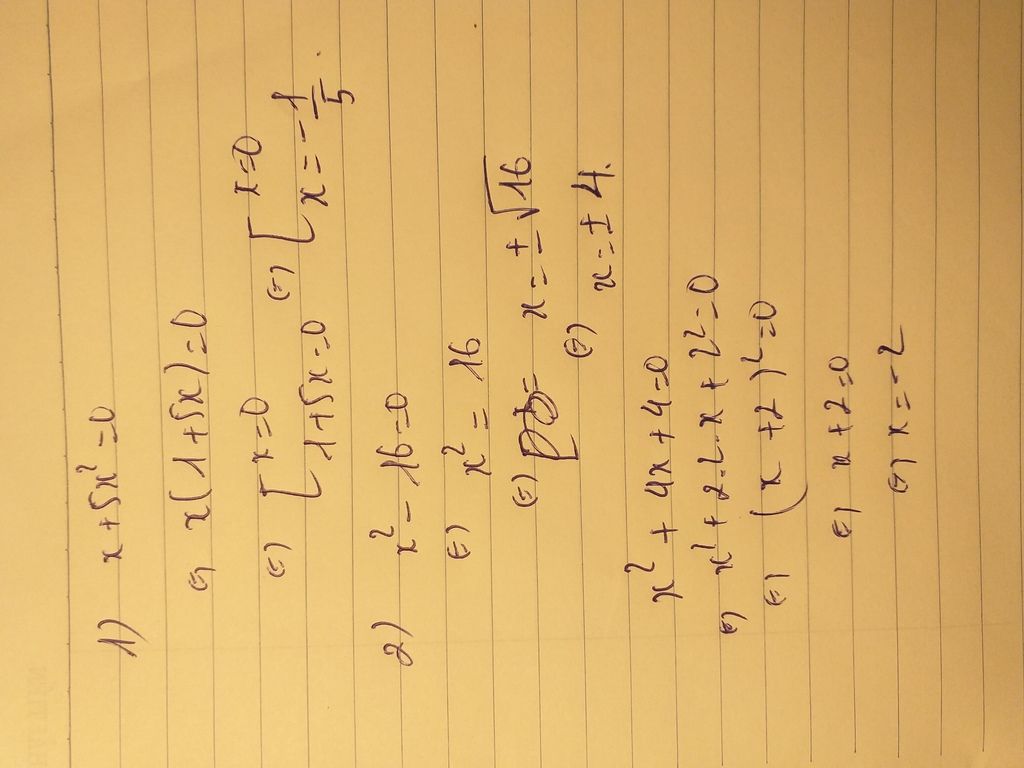 1) x + 5x² = 0
⇔ x(1+5x) = 0
⇔ [ x=0
1+5x=0 ⇔ [ x=0
x = -1/5.
2) x² - 16 = 0
⇔ x² = 16
⇔ x = ±√16
⇔ x = ± 4.
x² + 4x + 4 = 0
⇔ x² + 2.2.x + 2² = 0
⇔ (x + 2)² = 0
⇔ x + 2 = 0
⇔ x = -2